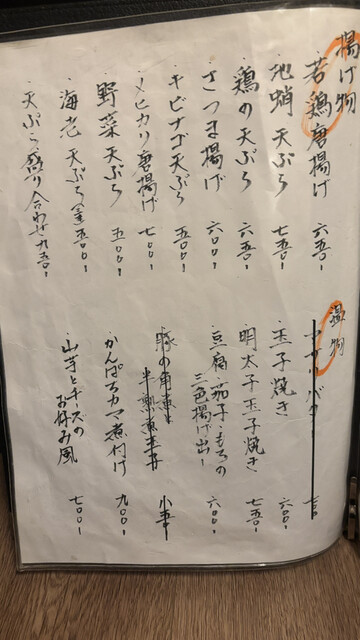 揚げ物
・若鶏唐揚げ 六五〇-
・地蛸天ぷら 七五〇-
・鶏の天ぷら 六五〇-
・さつま揚げ 六〇〇-
・キビナゴ天ぷら 五〇〇-
・メヒカリ唐揚げ 七〇〇-
・野菜天ぷら 五〇〇-
・海老天ぷら 五〇〇-
・天ぷら盛り合わせ 九五〇-
温物
バタ 七〇〇-
・玉子焼き 六〇〇-
・明太子玉子焼き 七五〇-
・豆腐・茄子・もちの
三色揚げ出し 六〇〇-
・豚の角煮
半熟煮玉子
・かんぱちカマ煮付け 九〇〇-
・山芋とチーズの
お好み風 七〇〇-